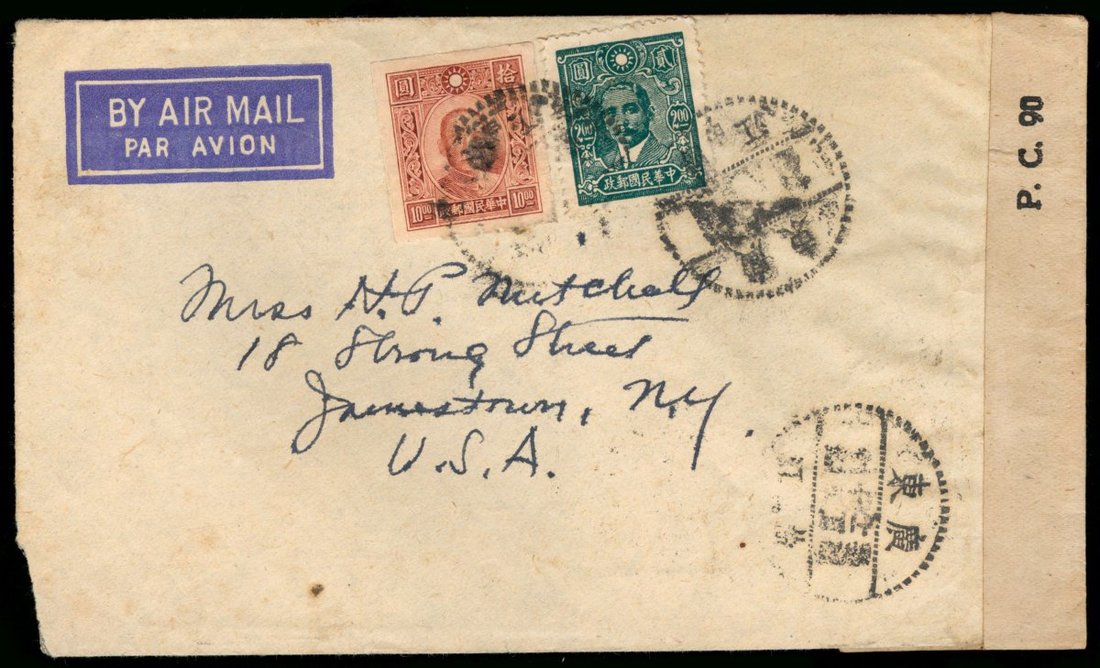 BY AIR MAIL
PAR AVION
圓 拾
10.00 政郵國民華中 10.00
圓 貳
200 200
政郵國民華中
P. C. 90
Miss H. P. Mitchell
18 Strong Street
Jamestown, N.Y.
U.S.A.
廣東